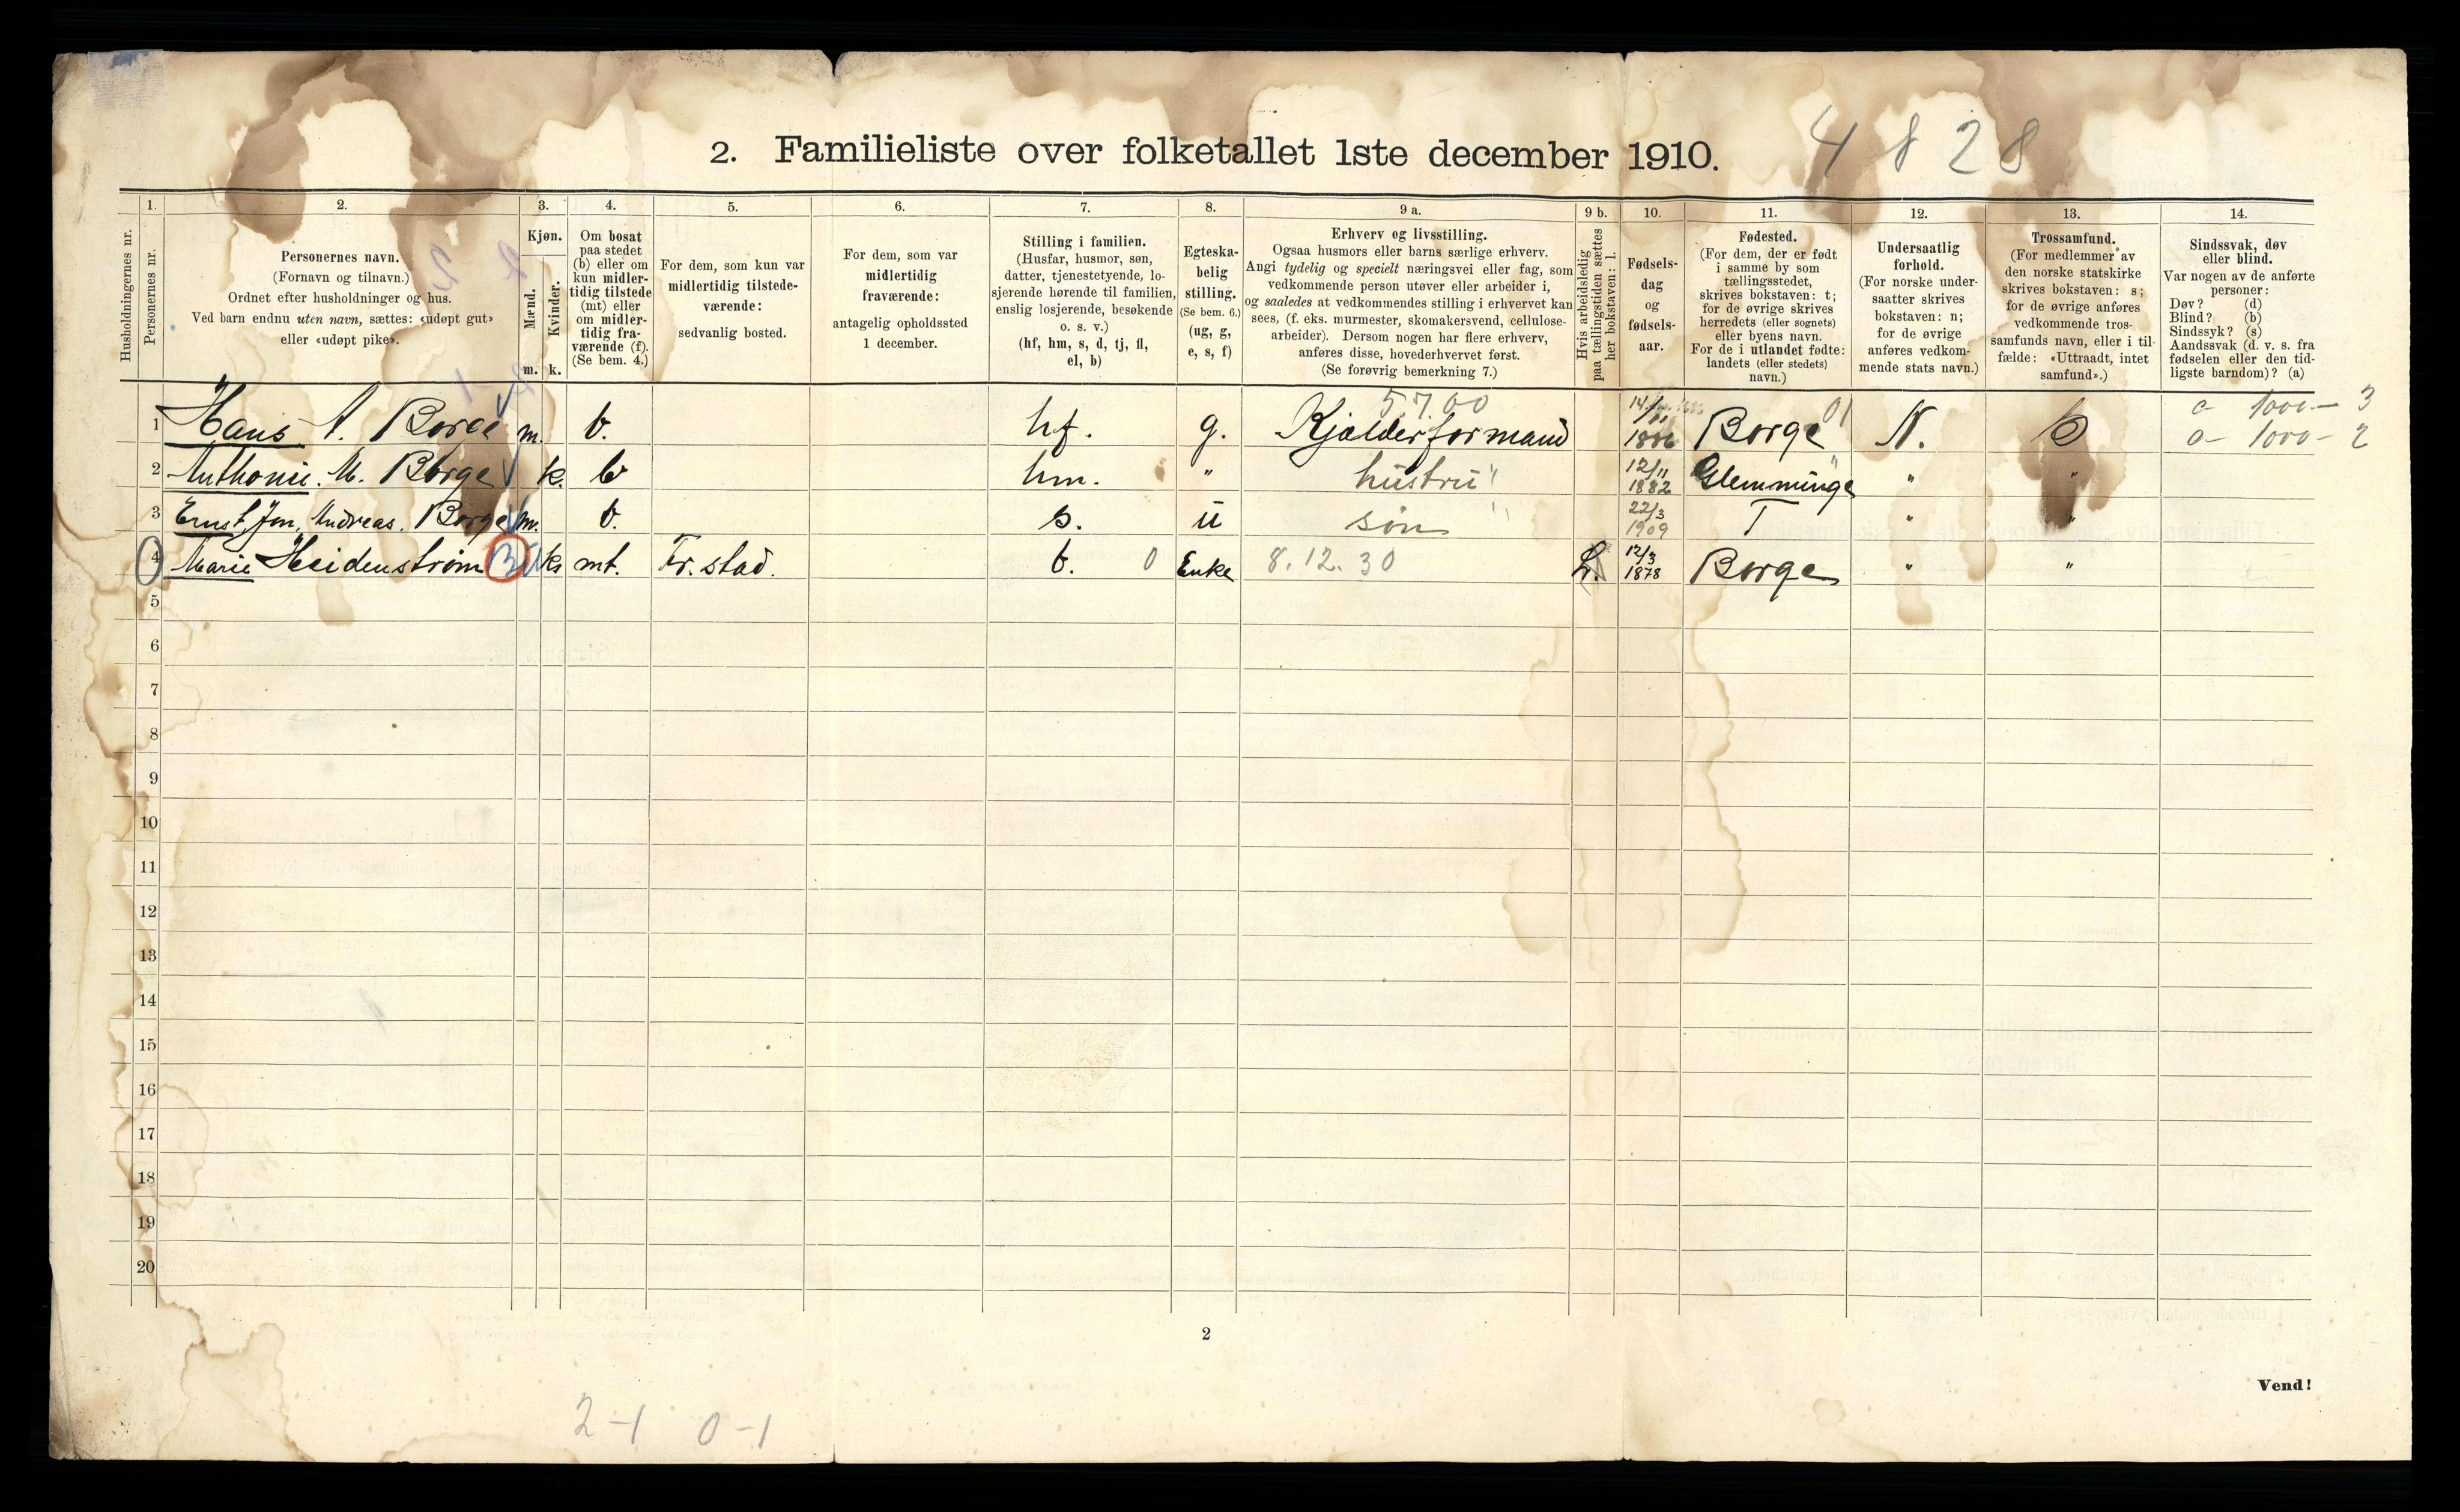 4828
2. Familieliste over folketallet 1ste december 1910.
Husholdningernes nr.
1.
Personernes nr.
2.
Personernes navn.
(Fornavn og tilnavn.)
Ordnet efter husholdninger og hus.
Ved barn endnu uten navn, sættes: «udøpt gut»
eller «udøpt pike».
3.
Kjøn.
Mænd.
Kvinder.
m. k.
4.
Om bosat
paa stedet
(b) eller om
kun midler-
tidig tilstede
(mt) eller
om midler-
tidig fra-
værende (f).
(Se bem. 4.)
5.
For dem, som kun var
midlertidig tilstede-
værende:
sedvanlig bosted.
6.
For dem, som var
midlertidig
fraværende:
antagelig opholdssted
1 december.
7.
Stilling i familien.
(Husfar, husmor, søn,
datter, tjenestetyende, lo-
sjerende hørende til familien,
enslig losjerende, besøkende
o. s. v.)
(hf, hm, s, d, tj, fl,
el, b)
8.
Egteska-
belig
stilling.
(Se bem. 6.)
(ug, g,
e, s, f)
9 a.
Erhverv og livsstilling.
Ogsaa husmors eller barns særlige erhverv.
Angi tydelig og specielt næringsvei eller fag, som
vedkommende person utøver eller arbeider i,
og saaledes at vedkommendes stilling i erhvervet kan
sees, (f. eks. murmester, skomakersvend, cellulose-
arbeider). Dersom nogen har flere erhverv,
anføres disse, hovederhvervet først.
(Se forøvrig bemerkning 7.)
9 b.
Hvis arbeidsledig
paa tællingstiden sættes
her bokstaven: l.
10.
Fødsels-
dag
og
fødsels-
aar.
11.
Fødested.
(For dem, der er født
i samme by som
tællingsstedet,
skrives bokstaven: t;
for de øvrige skrives
herredets (eller sognets)
eller byens navn.
For de i utlandet fødte:
landets (eller stedets)
navn.)
12.
Undersaatlig
forhold.
(For norske under-
saatter skrives
bokstaven: n;
for de øvrige
anføres vedkom-
mende stats navn.)
13.
Trossamfund.
(For medlemmer av
den norske statskirke
skrives bokstaven: s;
for de øvrige anføres
vedkommende tros-
samfunds navn, eller i til-
fælde: «Uttraadt, intet
samfund».)
14.
Sindssvak, døv
eller blind.
Var nogen av de anførte
personer:
Døv? (d)
Blind? (b)
Sindssyk? (s)
Aandssvak (d. v. s. fra
fødselen eller den tid-
ligste barndom)? (a)
57.00 01 1000 — 3
1 Hans A. Borge m. b. hf. g. Kjælderformand Borge N. 1000 — 2
2 Anthonie. M. Borge k. b hm. " hustru " 12/11 1882 Glemminge " "
3 Ernst, Jon, Andreas. Borge m. b. s. u søn " 22/3 1909 T " "
4 Marie Heidenstrøm k. mt. Fr.stad. b. 0 Enke 8.12.30 L. 12/3 1878 Borge " "
5
6
7
8
9
10
11
12
13
14
15
16
17
18
19
20
2
Vend!
2-1 0-1